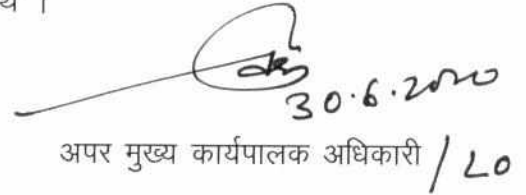 थे ।
30.6.2020
अपर मुख्य कार्यपालक अधिकारी / LO